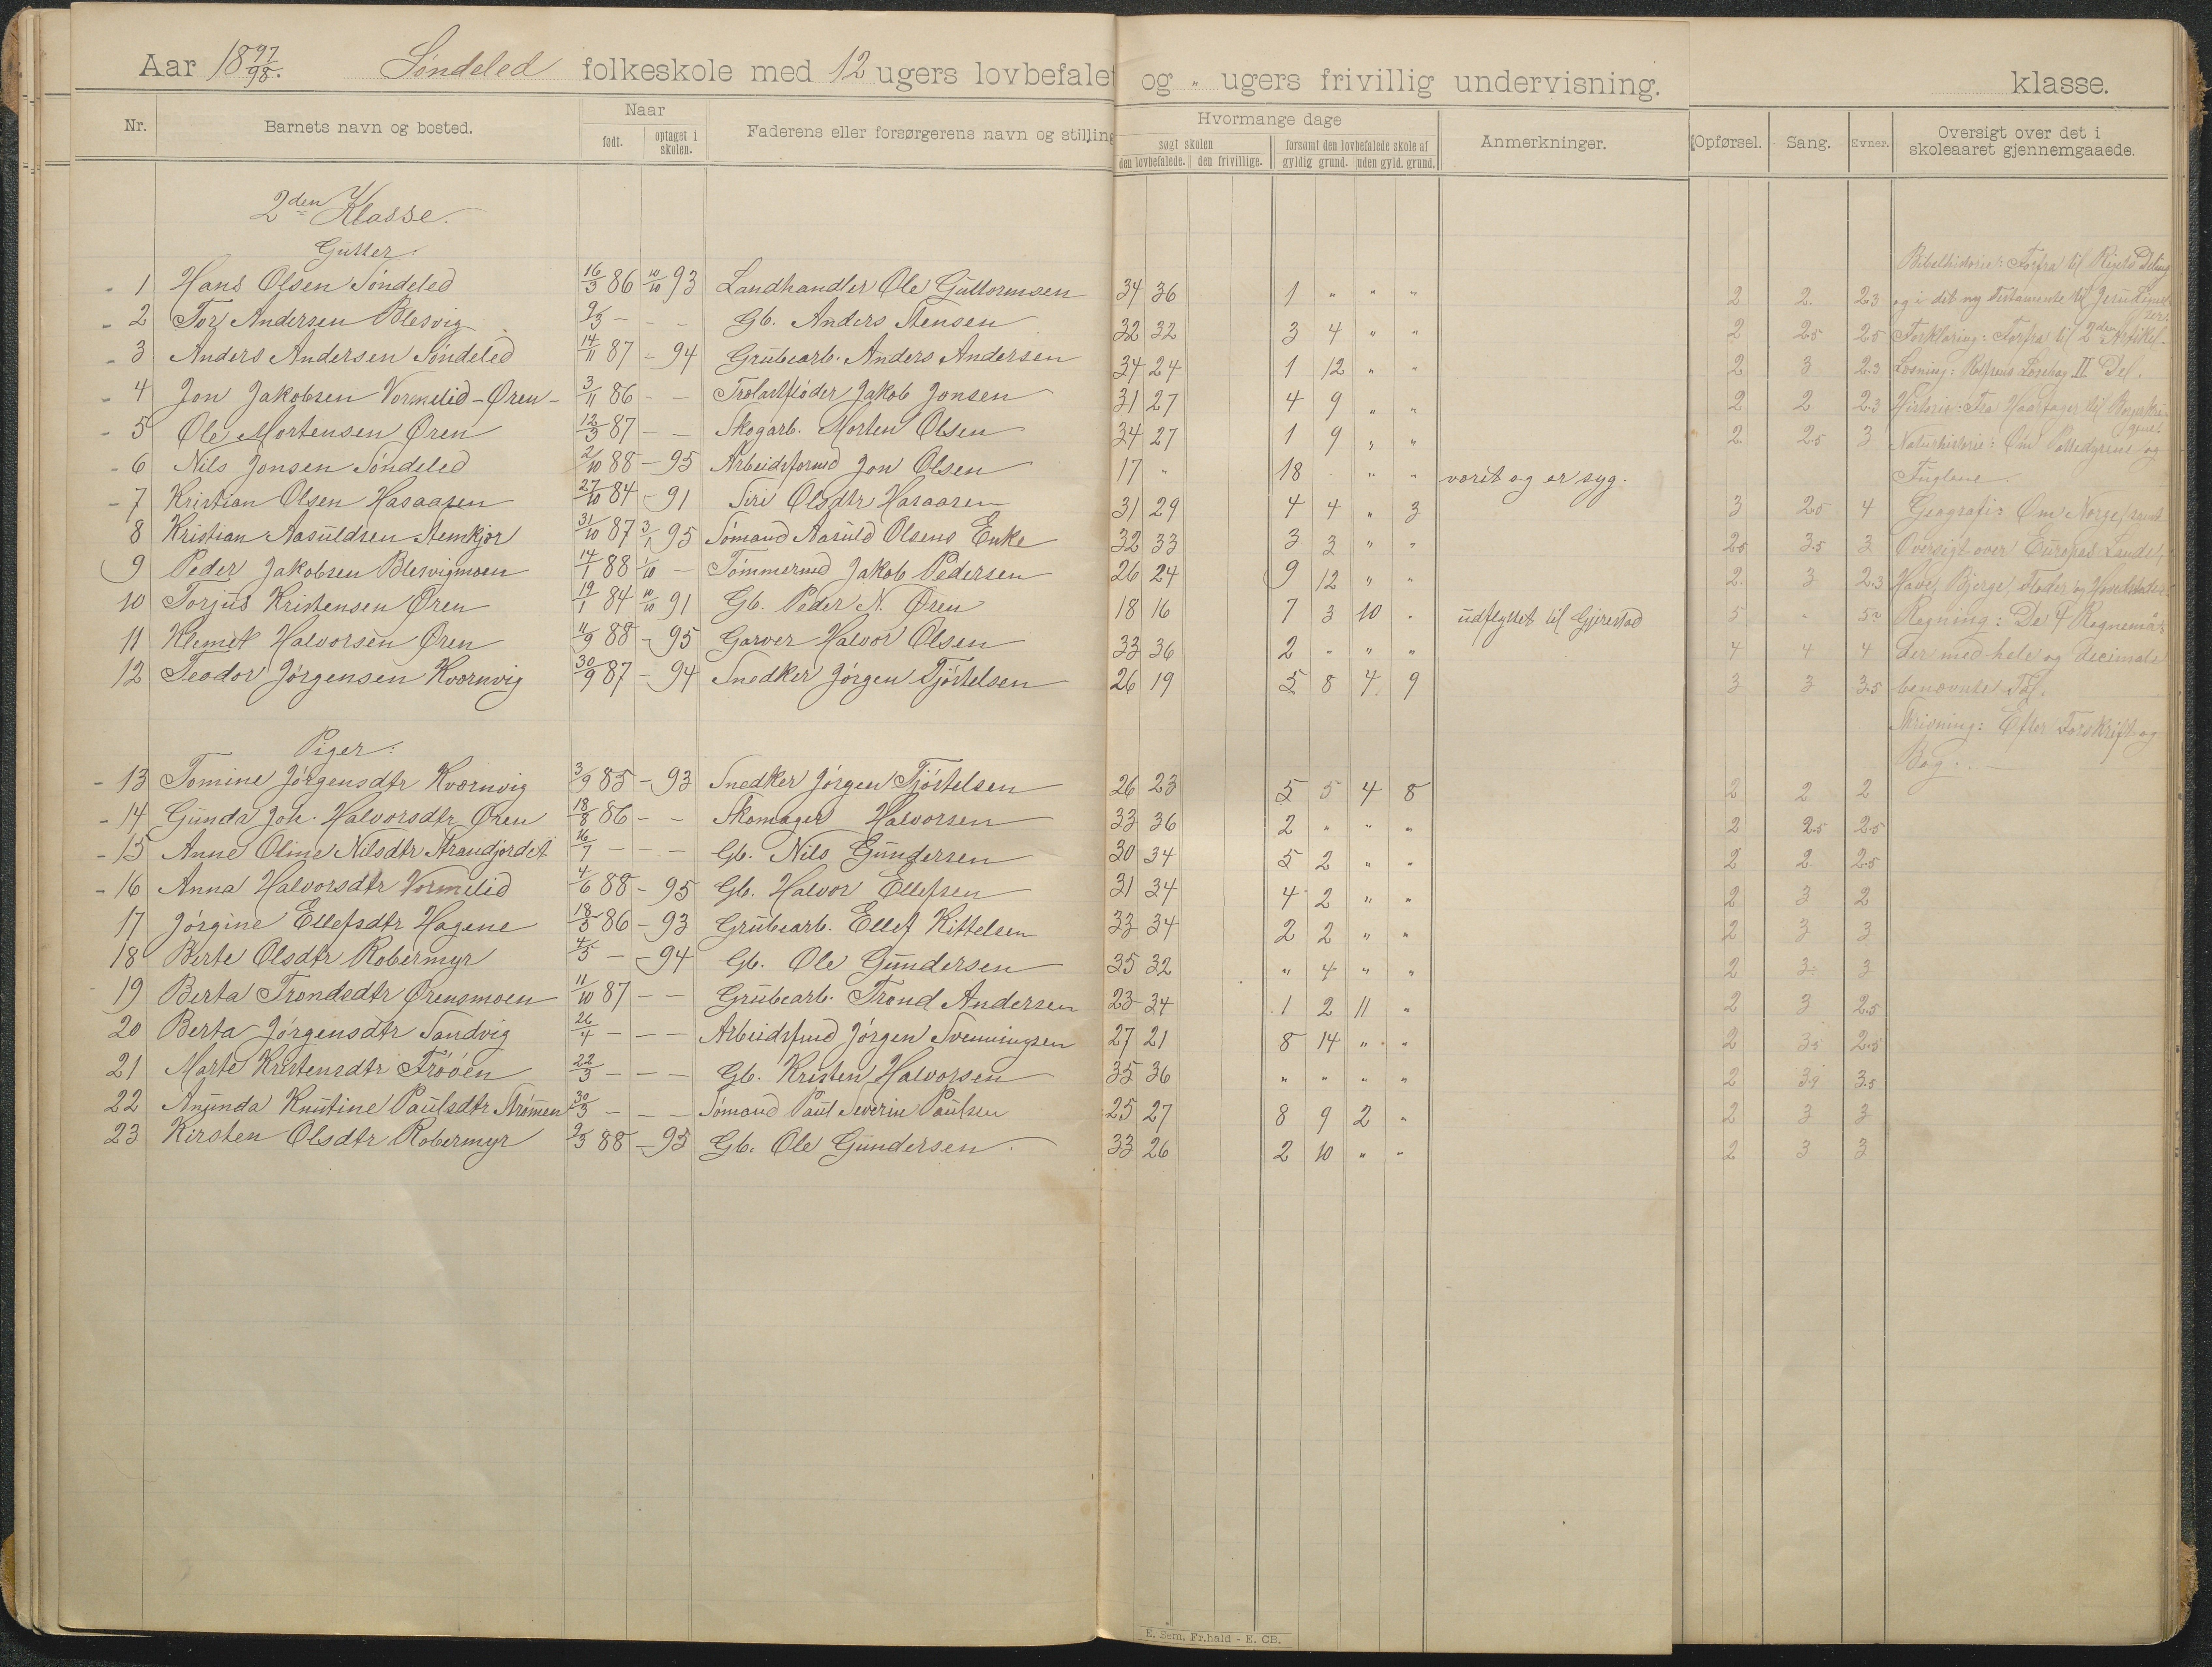 Aar 1897/98. Söndeled folkeskole med 12 ugers lovbefalet og " ugers frivillig undervisning. klasse.
Nr. Barnets navn og bosted. Naar født. optaget i skolen. Faderens eller forsørgerens navn og stilling Hvormange dage søgt skolen den lovbefalede. den frivillige. forsømt den lovbefalede skole af gyldig grund. uden gyld. grund. Anmerkninger. Opførsel. Sang. Evner. Oversigt over det i skoleaaret gjennemgaaede.
2den Klasse.
Gutter.
Bibelhistorie: Forfra til Rigets Deling
1 Hans Olsen Söndeled 16/3 86 10/10 93 Landhandler Ole Guttormsen 34 36 1 " " " 2 2. 2.3 og i det ny Testamente til Jesu
2 Tor Andersen Blesvig 9/3 - - - Gb. Anders Stensen 32 32 3 4 " " 2 2.5 2.5 Forklaring: Forfra til 2den Artikel.
3 Anders Andersen Söndeled 14/11 87 - 94 Grubearb. Anders Andersen 34 24 1 12 " " 2 3 2.3 Læsning: Rolfsens Læsebog II Del.
4 Jon Jakobsen Vormelid-Øren - 3/11 86 - - Jakob Jonsen 31 27 4 9 " " 2 2 2.3 Historie: Fra Haarfager til
5 Ole Mortensen Øren 12/3 87 - - Skogarb. Morten Olsen 34 27 1 9 " " 2 2.5 3 Naturhistorie: Om Pattedyrene og
6 Nils Jonsen Söndeled 2/10 88 - 95 Arbeidsformd Jon Olsen 17 " 18 " " værit og er syg. Fuglene.
7 Kristian Olsen Hasaasen 27/10 84 - 91 Siri Olsdtr Hasaasen 31 29 4 4 " 3 3 2.5 4 Geografi: Om Norge, samt
8 Kristian Aasuldsen Stemkjær 31/10 87 3/1 95 Sömand Aasuld Olsens Enke 32 33 3 3 " " 2.5 3.5 3 Oversigt over Europas Lande,
9 Peder Jakobsen Blesvigmoen 14/1 88 1/10 - Tömmermd Jakob Pedersen 26 24 9 12 " " 2. 3 2.3 Have, Bjerge, Floder og Hovedstæder.
10 Torjus Kristensen Øren 19/1 84 10/10 91 Gb. Peder N. Øren 18 16 7 3 10 . udflyttet til Gjerestad 5 - 5 Regning: De 4 Regnemaa-
11 Klemet Halvorsen Øren 11/9 88 - 95 Garver Halvor Olsen 33 36 2 " " " 4 4 4 der med hele og decimale
12 Teodor Jörgensen Kværnvig 30/9 87 - 94 Snedker Jörgen Fjöstelsen 26 19 5 8 4 9 3 3 3.5 benævnte Tal.
Skrivning: Efter Forskrift og
Piger: Bog.
13 Tomine Jörgensdtr Kværnvig 3/9 85 - 93 Snedker Jörgen Fjöstelsen 26 23 5 5 4 8 2 2 2
14 Gunda Joh. Halvorsdtr Øren 18/8 86 - - Skomager Halvorsen 33 36 2 " " " 2 2.5 2.5
15 Anne Oline Nilsdtr Strandjordet 16/7 - - - Gb. Nils Gundersen 30 34 5 2 " " 2 2 2.5
16 Anna Halvorsdtr Vormelid 4/6 88 - 95 Gb. Halvor Ellefsen 31 34 4 2 " " 2 3 2
17 Jörgine Ellefsdtr Hagene 18/5 86 - 93 Grubearb. Ellef Kittelsen 33 34 2 2 " " 2 3 3
18 Berte Olsdtr Robermyr 4/5 - - 94 Gb. Ole Gundersen 35 32 " 4 " " 2 3 3
19 Berta Trondsdtr Ørensmoen 11/10 87 - - Grubearb. Trond Andersen 23 34 1 2 11 " 2 3 2.5
20 Berta Jörgensdtr Sandvig 26/4 - - - Arbeidsfmd Jörgen Svenningsen 27 21 8 14 " " 2 3.5 2.5
21 Marte Kristensdtr Frööen 22/3 - - - Gb. Kristen Halvorsen 35 36 " " " " 2 3.9 3.5
22 Anunda Knutine Paulsdtr Strömen 30/3 - - - Sömand Paul Severin Paulsen 25 27 8 9 2 " 2 3 3
23 Kirsten Olsdtr Robermyr 9/3 88 - 95 Gb. Ole Gundersen. 33 26 2 10 " " 2 3 3
E. Sem. Fr.hald - E. CB.